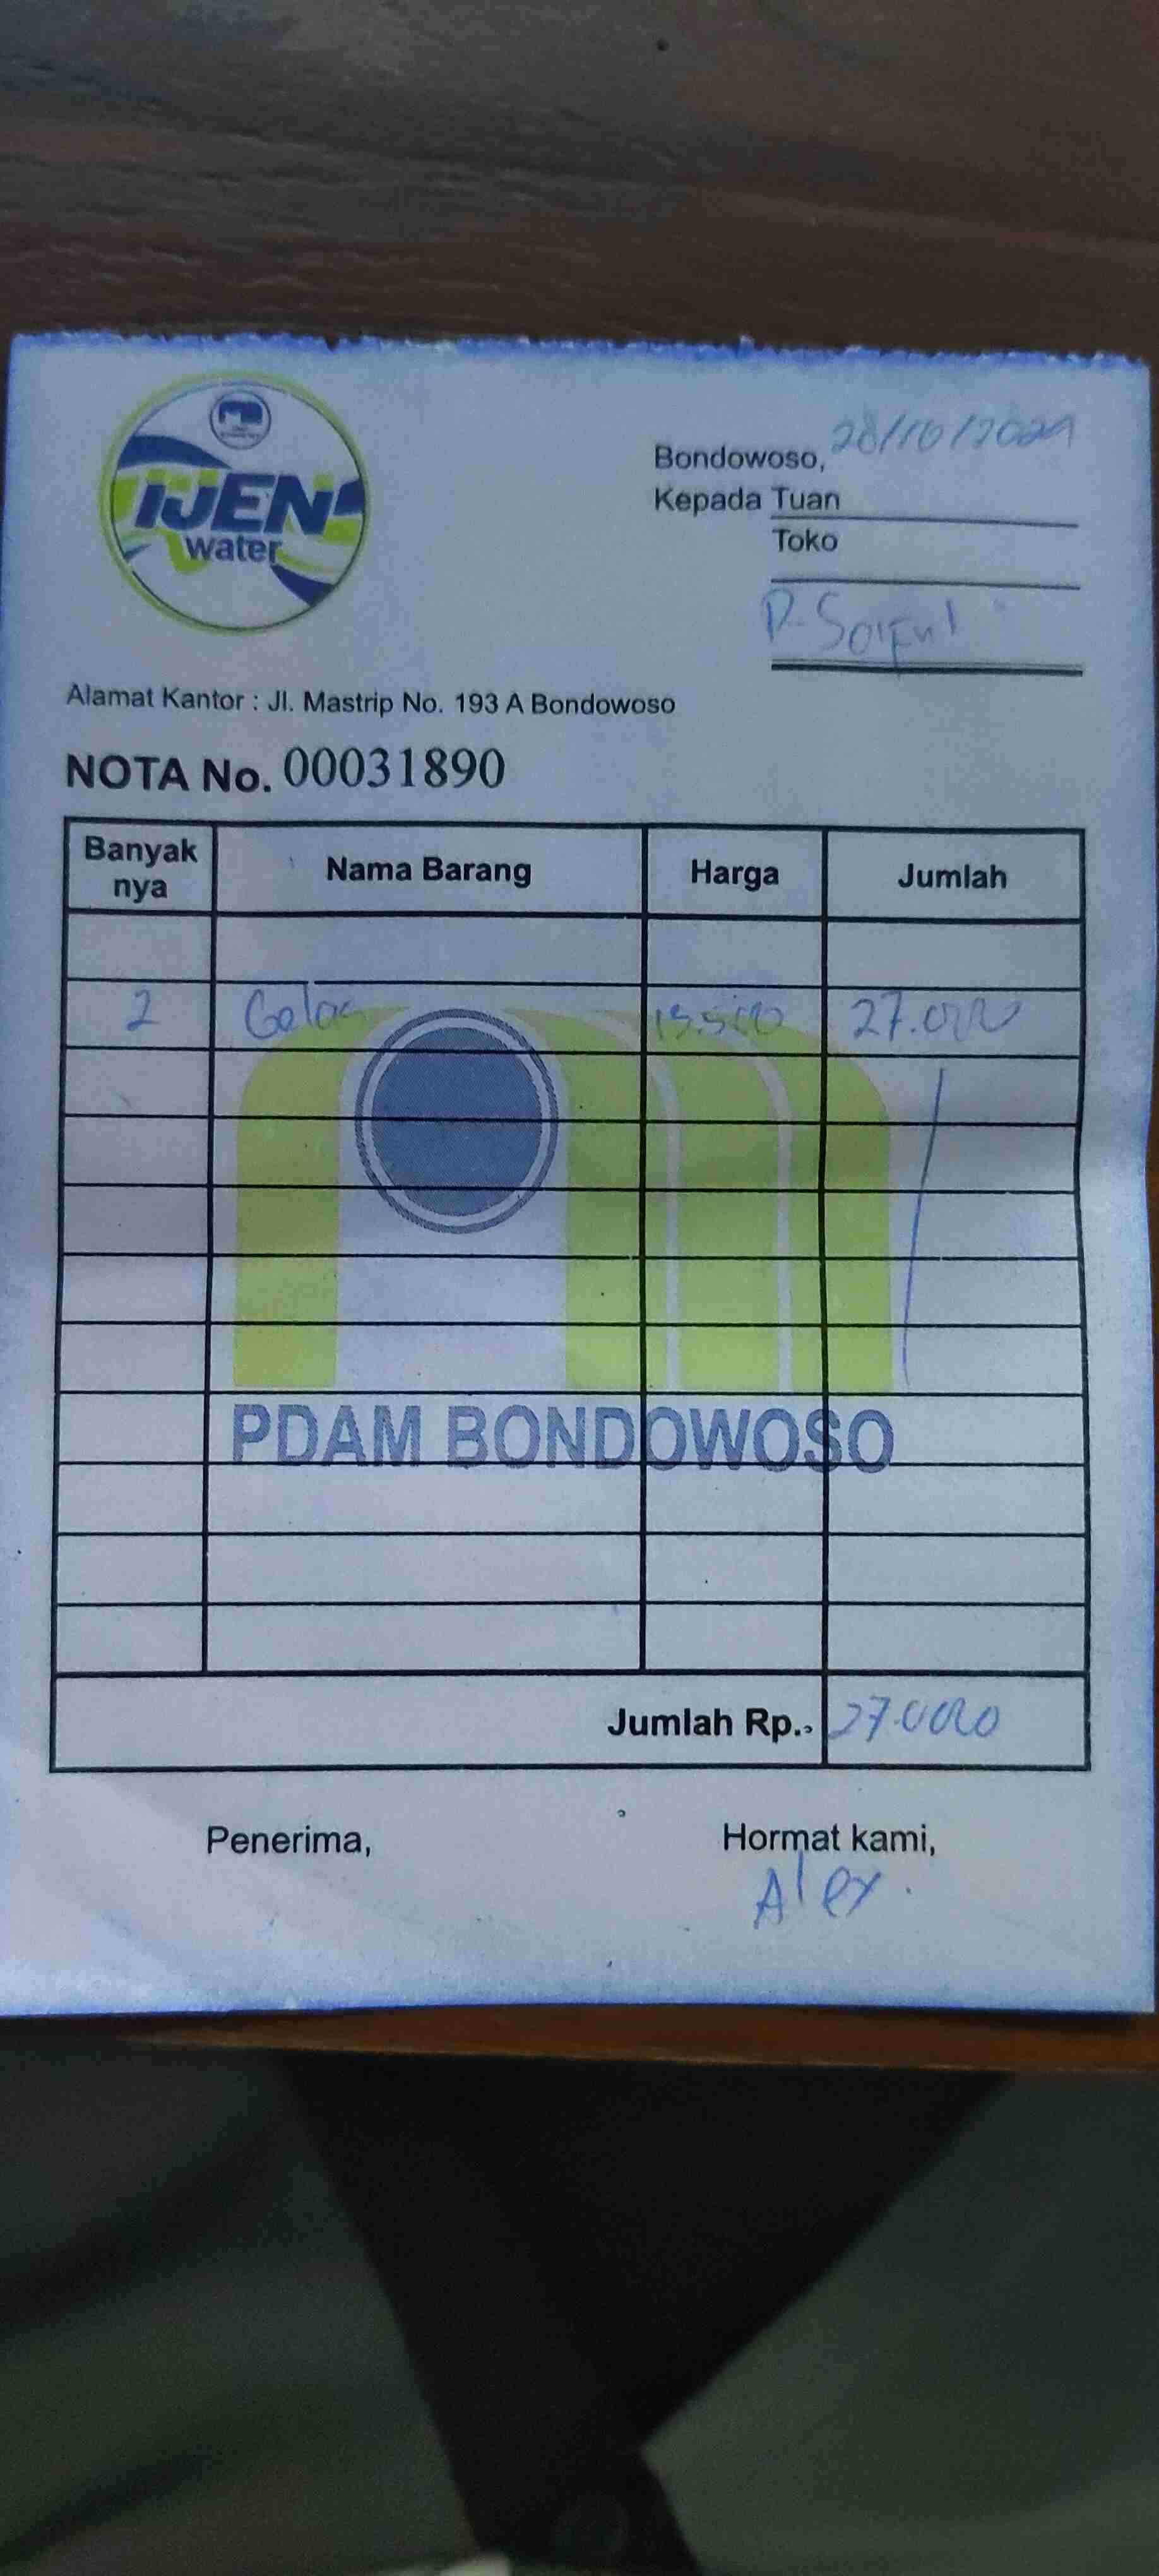 IJEN
water
Bondowoso, 28/10/2024
Kepada Tuan
Toko
P. Saiful
Alamat Kantor : Jl. Mastrip No. 193 A Bondowoso
NOTA No. 00031890
Banyak nya Nama Barang Harga Jumlah
2 Gelas 13.500 27.000
PDAM BONDOWOSO
Jumlah Rp. 27.000
Penerima, Hormat kami,
Alex